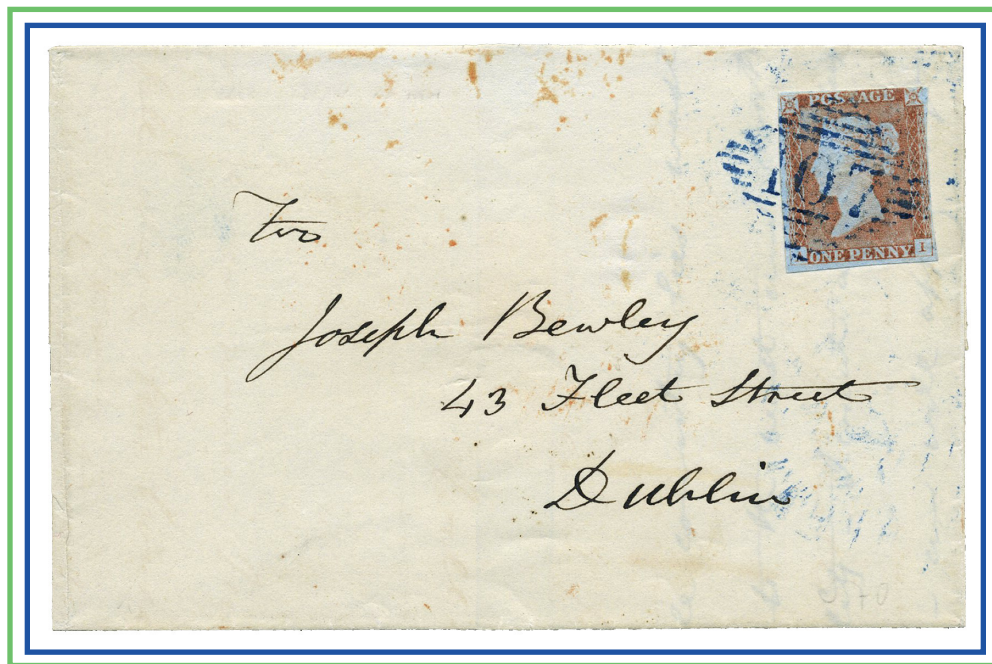 POSTAGE
ONE PENNY.
I
For
Joseph Bewley
43 Fleet Street
Dublin
70